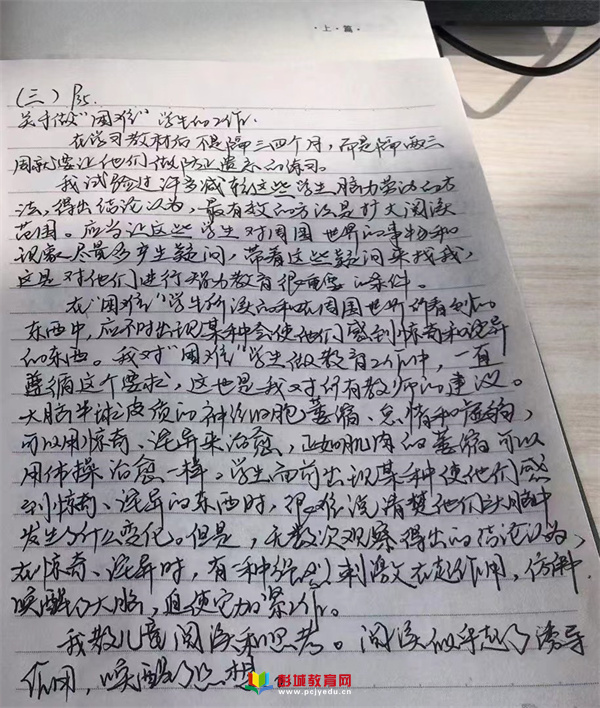 ·上·篇·
(三) P35.
关于做"困难"学生的工作.
在学习教材后不是隔三四个月，而是隔两三
周就要让他们做防止遗忘的练习。
我试验过许多减轻这些学生脑力劳动的方
法，得出结论认为，最有效的方法是扩大阅读
范围。应当让这些学生对周围世界的事物和
现象尽量多产生疑问，带着这些疑问来找我，
这是对他们进行智力教育很重要的条件。
在"困难"学生所读的和在周围世界所看到的
东西中，应不时出现某种会使他们感到惊奇和诧异
的东西。我对"困难"学生做教育工作中，一直
遵循这个要求，这也是我对所有教师的建议。
大脑半球皮质的神经细胞萎缩、怠惰和虚弱，
可以用惊奇、诧异来治愈，正如肌肉的萎缩可以
用体操治愈一样，学生面前出现某种使他们感
到惊奇、诧异的东西时，很难说清楚他们大脑中
发生了什么变化。但是，无数次观察得出的结论认为，
在惊奇、诧异时，有一种强烈刺激在起作用，仿佛
唤醒了大脑，迫使它加紧工作。
我教儿童阅读和思考。阅读似乎起了诱导
作用，唤醒了思想
彭城教育网
www.pcjyedu.cn